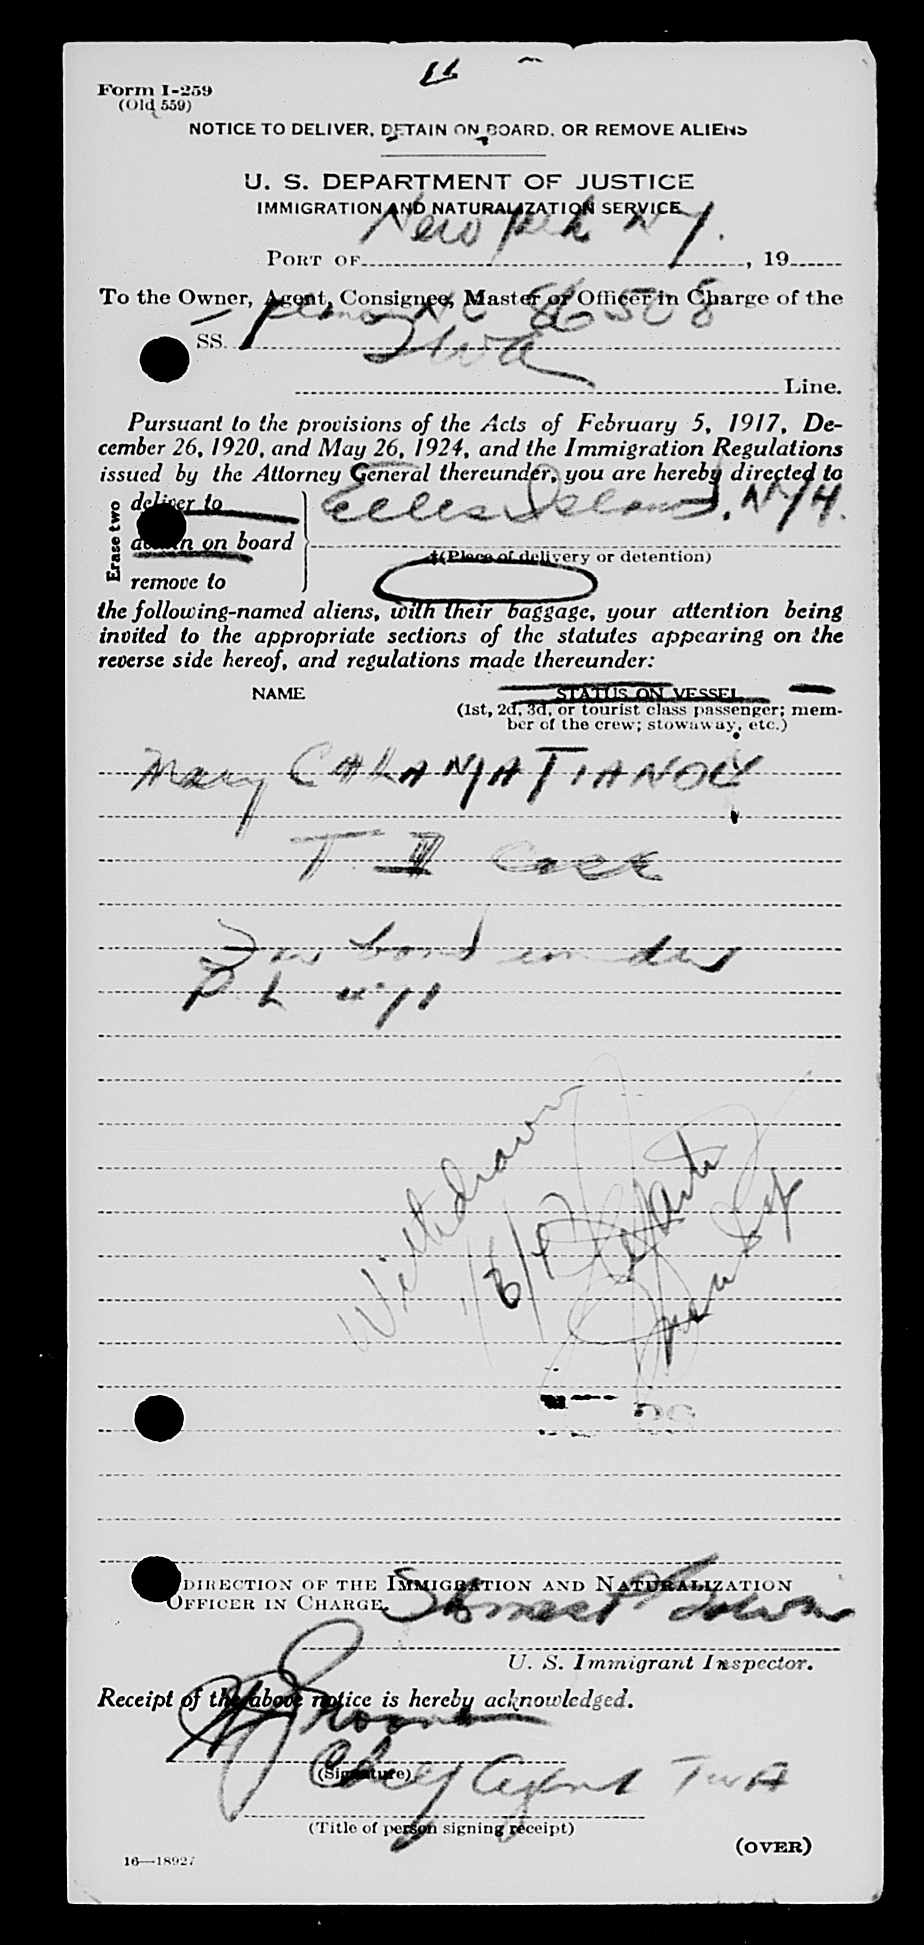 Form I-259
(Old 559)
NOTICE TO DELIVER, DETAIN ON BOARD, OR REMOVE ALIENS
U. S. DEPARTMENT OF JUSTICE
IMMIGRATION AND NATURALIZATION SERVICE
New York NY.
PORT OF, 19
To the Owner, Agent, Consignee, Master or Officer in Charge of the
SS. Plane NC 86508
TWA
Line.
Pursuant to the provisions of the Acts of February 5, 1917, De-
cember 26, 1920, and May 26, 1924, and the Immigration Regulations
issued by the Attorney General thereunder, you are hereby directed to
Erase two
deliver to
Ellis Island, NYH.
on board
(Place of delivery or detention)
remove to
the following-named aliens, with their baggage, your attention being
invited to the appropriate sections of the statutes appearing on the
reverse side hereof, and regulations made thereunder:
NAME
STATUS ON VESSEL
(1st, 2d, 3d, or tourist class passenger; mem-
ber of the crew; stowaway, etc.)
Mary CALANATIANOU
T. II Case
For bond under
P. L.
Withdrawn
DIRECTION OF THE IMMIGRATION AND NATURALIZATION
OFFICER IN CHARGE.
U. S. Immigrant Inspector.
Receipt of the above notice is hereby acknowledged.
(Signature)
Agent TWA
(Title of person signing receipt)
(OVER)
16—18927